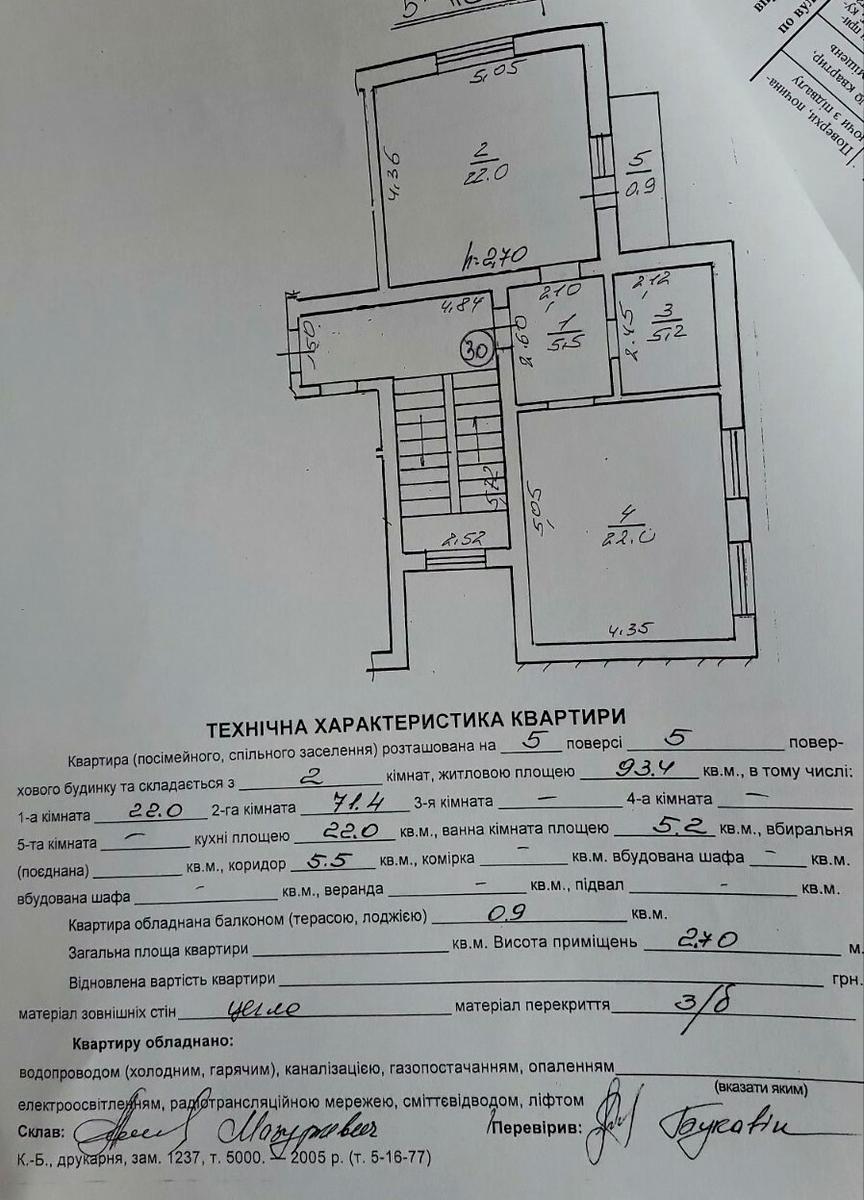 по вул
Поверхи, почина-
ючи з підвалу
5,05
2
22.0
4.36
5
0.9
h=2,70
4.84
2,10
2,12
1,50
30
2.60
1
5.5
2.45
3
5,2
5,05
4
22.0
2.52
4.35
ТЕХНІЧНА ХАРАКТЕРИСТИКА КВАРТИРИ
Квартира (посімейного, спільного заселення) розташована на 5 поверсі 5 повер-
хового будинку та складається з 2 кімнат, житловою площею 93.4 кв.м., в тому числі:
1-а кімната 22.0 2-га кімната 71.4 3-я кімната – 4-а кімната –
5-та кімната – кухні площею 22.0 кв.м., ванна кімната площею 5.2 кв.м., вбиральня
(поєднана) кв.м., коридор 5.5 кв.м., комірка – кв.м. вбудована шафа – кв.м.
вбудована шафа – кв.м., веранда – кв.м., підвал – кв.м.
Квартира обладнана балконом (терасою, лоджією) 0.9 кв.м.
Загальна площа квартири кв.м. Висота приміщень 2.70 м.
Відновлена вартість квартири грн.
матеріал зовнішніх стін цегла матеріал перекриття з/б
Квартиру обладнано:
водопроводом (холодним, гарячим), каналізацією, газопостачанням, опаленням
(вказати яким)
електроосвітленням, радіотрансляційною мережею, сміттєвідводом, ліфтом
Склав: Перевірив:
К.-Б., друкарня, зам. 1237, т. 5000. – 2005 р. (т. 5-16-77)